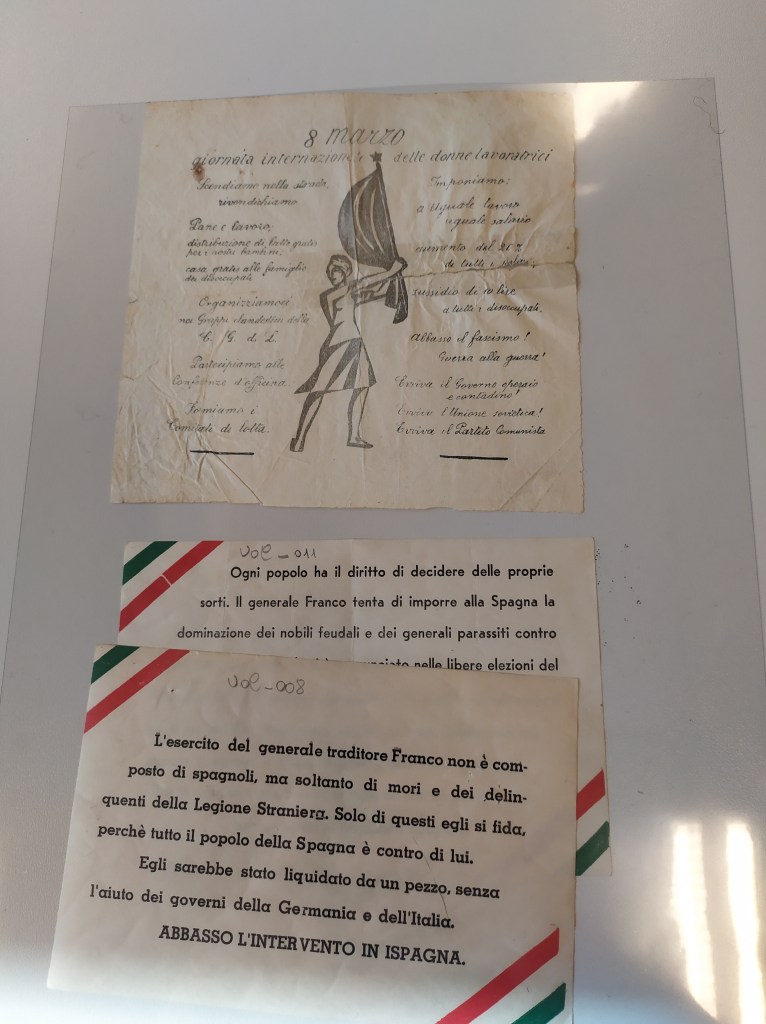 8 marzo
giornata internazionale delle donne lavoratrici
Scendiamo nella strada,
rivendichiamo
Pane e lavoro;
distribuzione di latte gratis
per i nostri bambini;
casa gratis alle famiglie
dei disoccupati
Organizziamoci
nei Gruppi clandestini della
C. G. d. L.
Partecipiamo alle
Commissioni d'officina.
Formiamo i
Comitati di lotta.
Imponiamo:
a Uguale lavoro
uguale salario
aumento del 20%
di tutti i salari.
sussidio di 10 lire
a tutti i disoccupati.
Abbasso il fascismo!
Guerra alla guerra!
Evviva il Governo operaio
e contadino!
Evviva l'Unione sovietica!
Evviva il Partito Comunista
VOL-011
Ogni popolo ha il diritto di decidere delle proprie
sorti. Il generale Franco tenta di imporre alla Spagna la
dominazione dei nobili feudali e dei generali parassiti contro
nelle libere elezioni del
VOL-008
L'esercito del generale traditore Franco non è com-
posto di spagnoli, ma soltanto di mori e dei delin-
quenti della Legione Straniera. Solo di questi egli si fida,
perchè tutto il popolo della Spagna è contro di lui.
Egli sarebbe stato liquidato da un pezzo, senza
l'aiuto dei governi della Germania e dell'Italia.
ABBASSO L'INTERVENTO IN ISPAGNA.